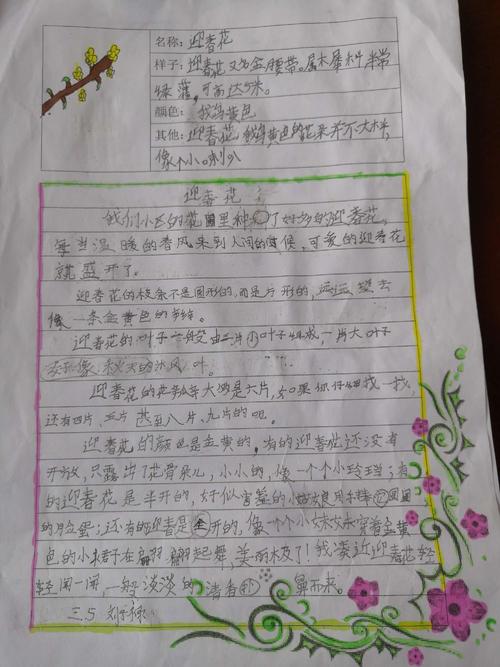 名称：迎春花
样子：迎春花又名金腰带。属木犀科半常
绿灌，可高达5米。
颜色：我鸟黄色
其他：迎春花我鸟黄色的花朵并不大样，
像个小。喇叭
迎春花
我们小区的花园里种了好多的迎春花，
每当温暖的春风来到人间的时候，可爱的迎春花
就盛开了。
迎春花的枝条不是圆形的，而是片形的，远远望去
像一条金黄色的
迎春花的叶子一般由三片小叶子组成，一片大叶子
好像秋天的叶。
迎春花的花大概是六片，如果你仔细找一找，
还有四片、五片甚至八片、九片的呢。
迎春花的颜色是金黄的，有的迎春花还没有
开放，只露出了花骨朵儿，小小的，像一个个小铃铛；有
的迎春花是半开的，好似害羞的小姑娘用手捧圆圆
的脸蛋；还有的迎春是全开的，像一个个小妹妹穿着金黄
色的小裙子在翩翩起舞，美丽极了！我凑近迎春花轻
轻闻一闻，一般淡淡的清香扑鼻而来。
三.5